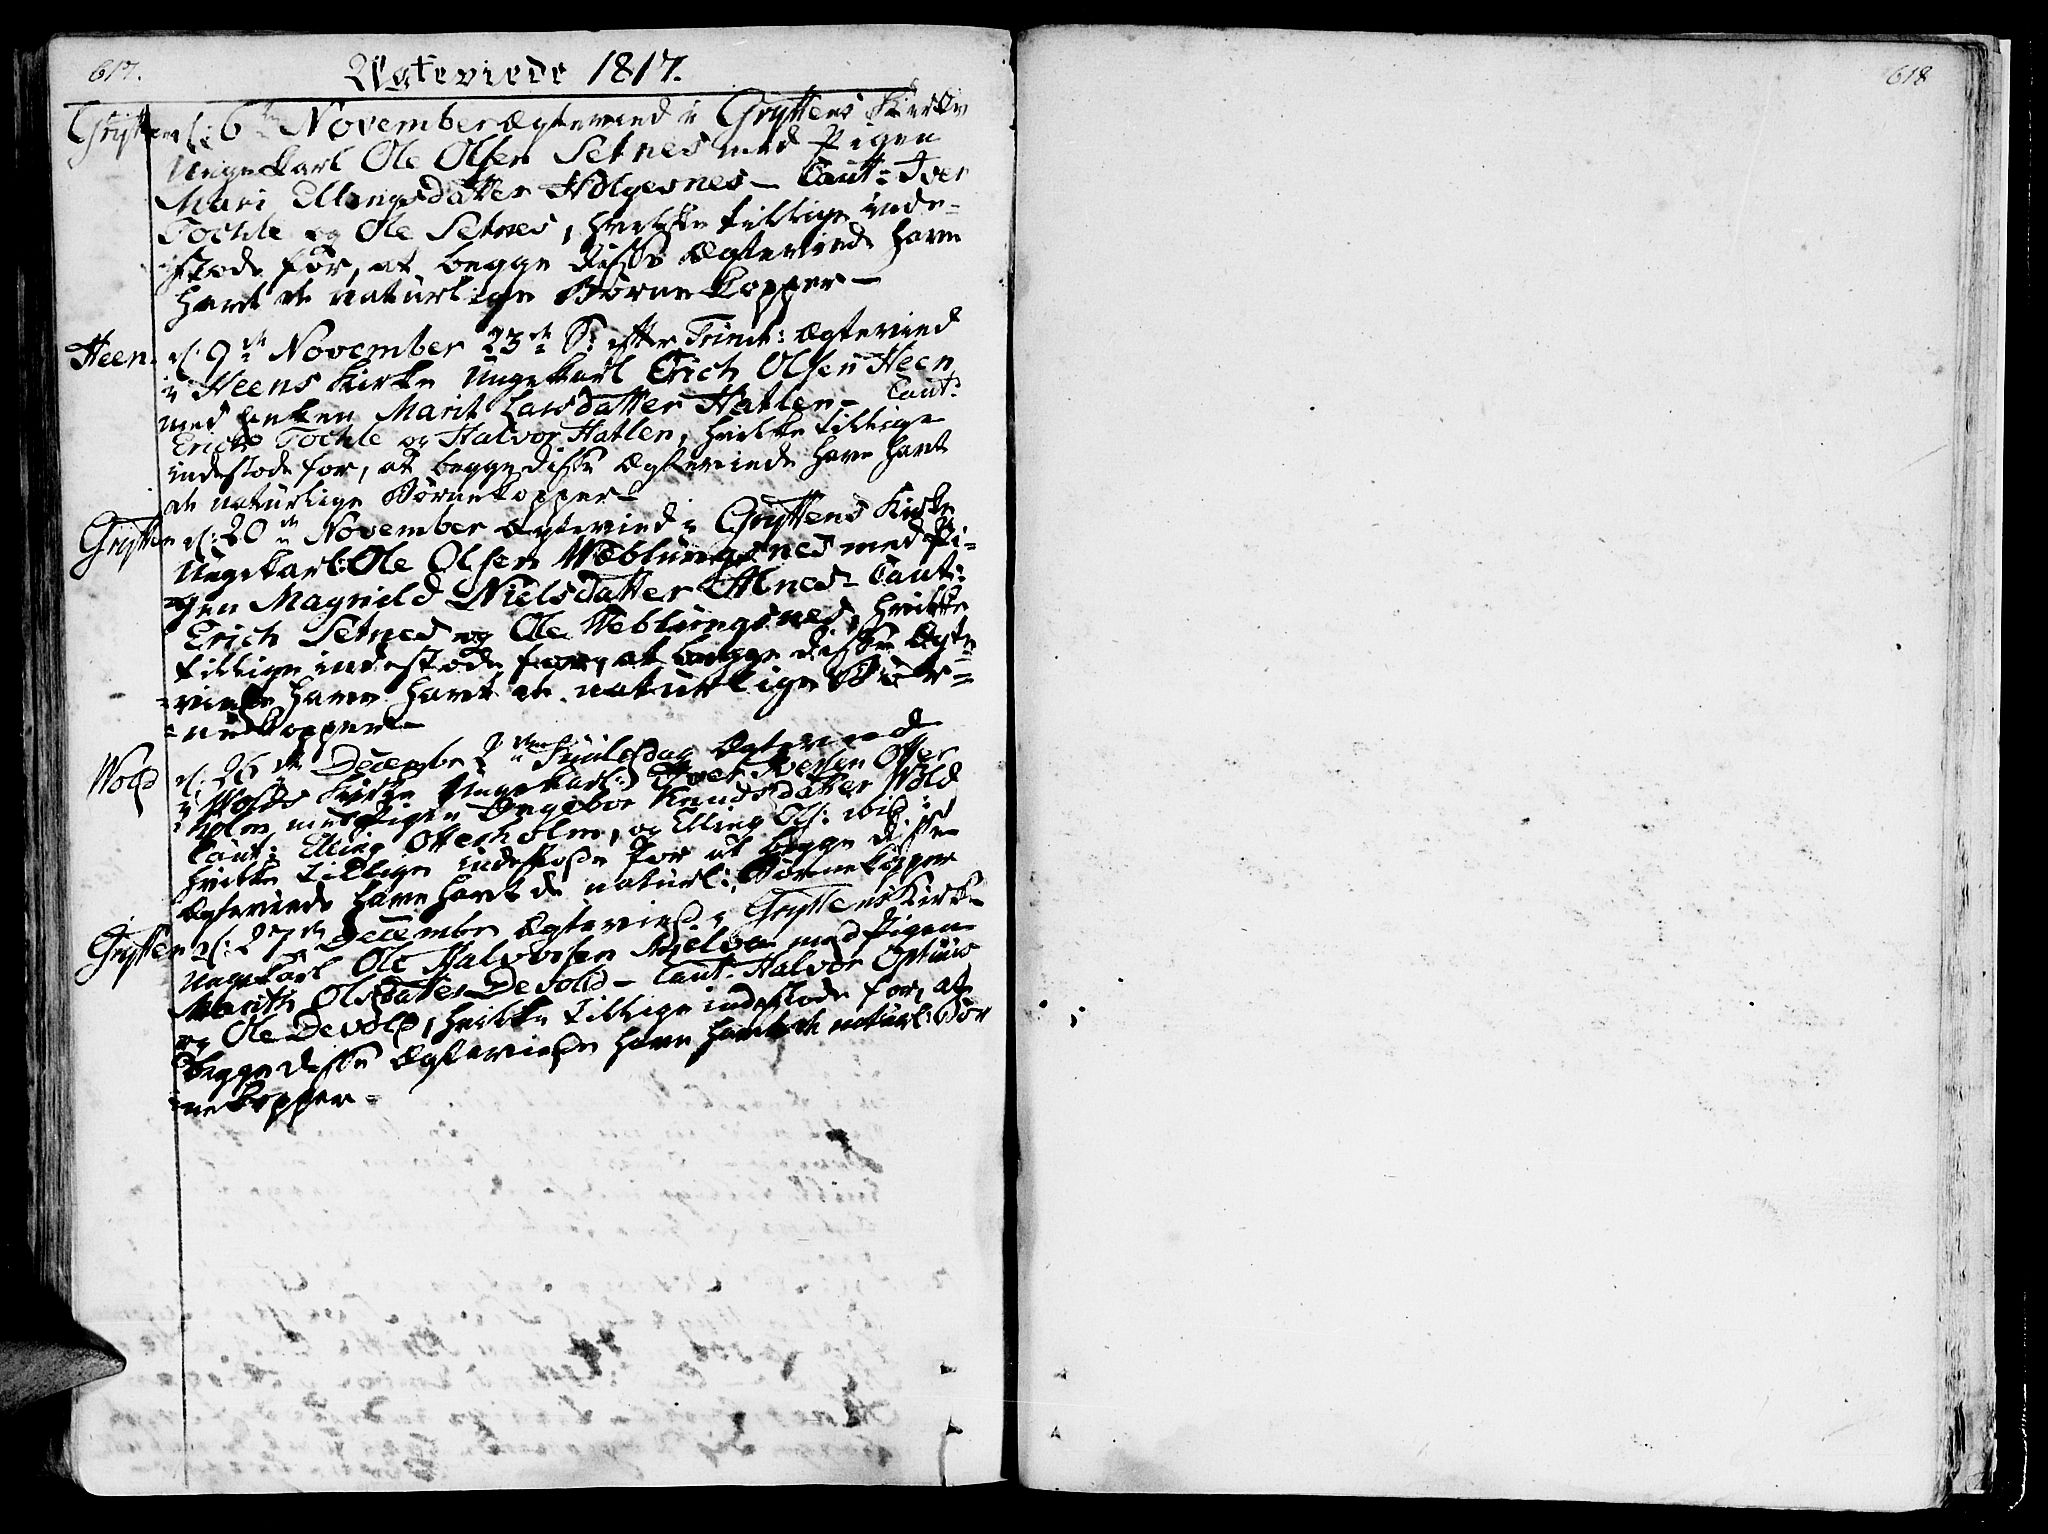 617.
Ægteviede 1817.
618
Grytten d: 6te November Ægteviede i Gryttens Kirke
Ungekarl Ole Olsen Setnes med Pigen
Mari Ellingsdatter Holgesnes - Caut: Iver
Tochle og Ole Setnes, hvilke tillige inde-
stode for, at begge disse Ægteviede have
havt de naturlige Børnekopper -
Heen. d: 9de November 23de S: efter Trinit: Ægteviede
i Heens Kirke Ungekarl Erich Olsen Heen
med Enken Marit Larsdatter Hatlen - Caut:
Erich Tochle og Halvor Hatlen, hvilke tillige
indestode for, at begge disse Ægteviede have havt
de naturlige Børnekopper -
Grytten d: 20de November Ægteviede i Gryttens Kirke
Ungekarl: Ole Olsen Wæblungsnes med Pi-
=gen Magnild Nielsdatter Alnes - Caut:
Erich Setnes og Ole Weblungsnes, hvilke
tillige indestode for, at begge disse Ægte
=viede have havt de naturlige Bør=
=nekopper -
Wold d: 26de December 2den Juuledag Ægteviede
i Wolds Kirke Ungekarl: Iver Iversen Otter
holm med Pigen Ingebor Knudsdatter Wold
Caut: Elling Otterholm, og Elling Ols: ibid:
hvilke tillige indestode for at begge disse
Ægteviede have havt de naturl: Børnekopper
Grytten d: 27de December Ægteviede i Gryttens Kirke
Ungekarl Ole Halvorsen Mjelva med Pigen
Marith Olsdatter Devold - Caut: Halvor
og Ole Devold, hvilke tillige indestode for, at
begge disse Ægteviede have havt de naturl: Bør
=nekopper -